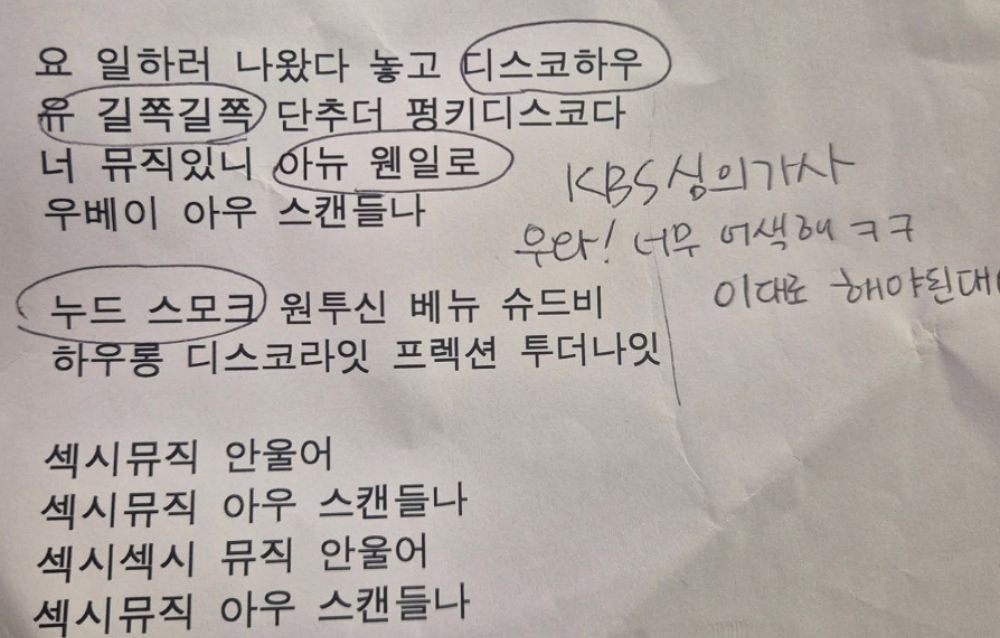 요 일하러 나왔다 놓고 디스코하우
유 길쭉길쭉 단추더 펑키디스코다
너 뮤직있니 아뉴 웬일로
우베이 아우 스캔들나
KBS심의가사
우와! 너무 어색해 ㅋㅋ
이대로 해야된대
누드 스모크 원투신 베뉴 슈드비
하우롱 디스코라잇 프렉션 투더나잇
섹시뮤직 안울어
섹시뮤직 아우 스캔들나
섹시섹시 뮤직 안울어
섹시뮤직 아우 스캔들나